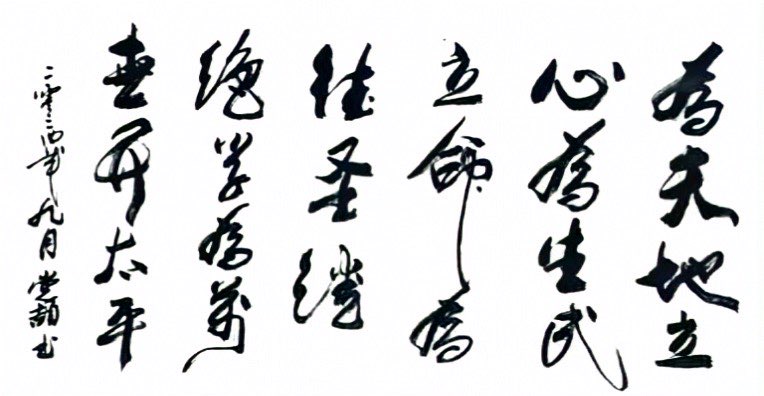 為天地立
心為生民
立命為
往圣繼
絕学為萬
世开太平
二零二四年九月 书